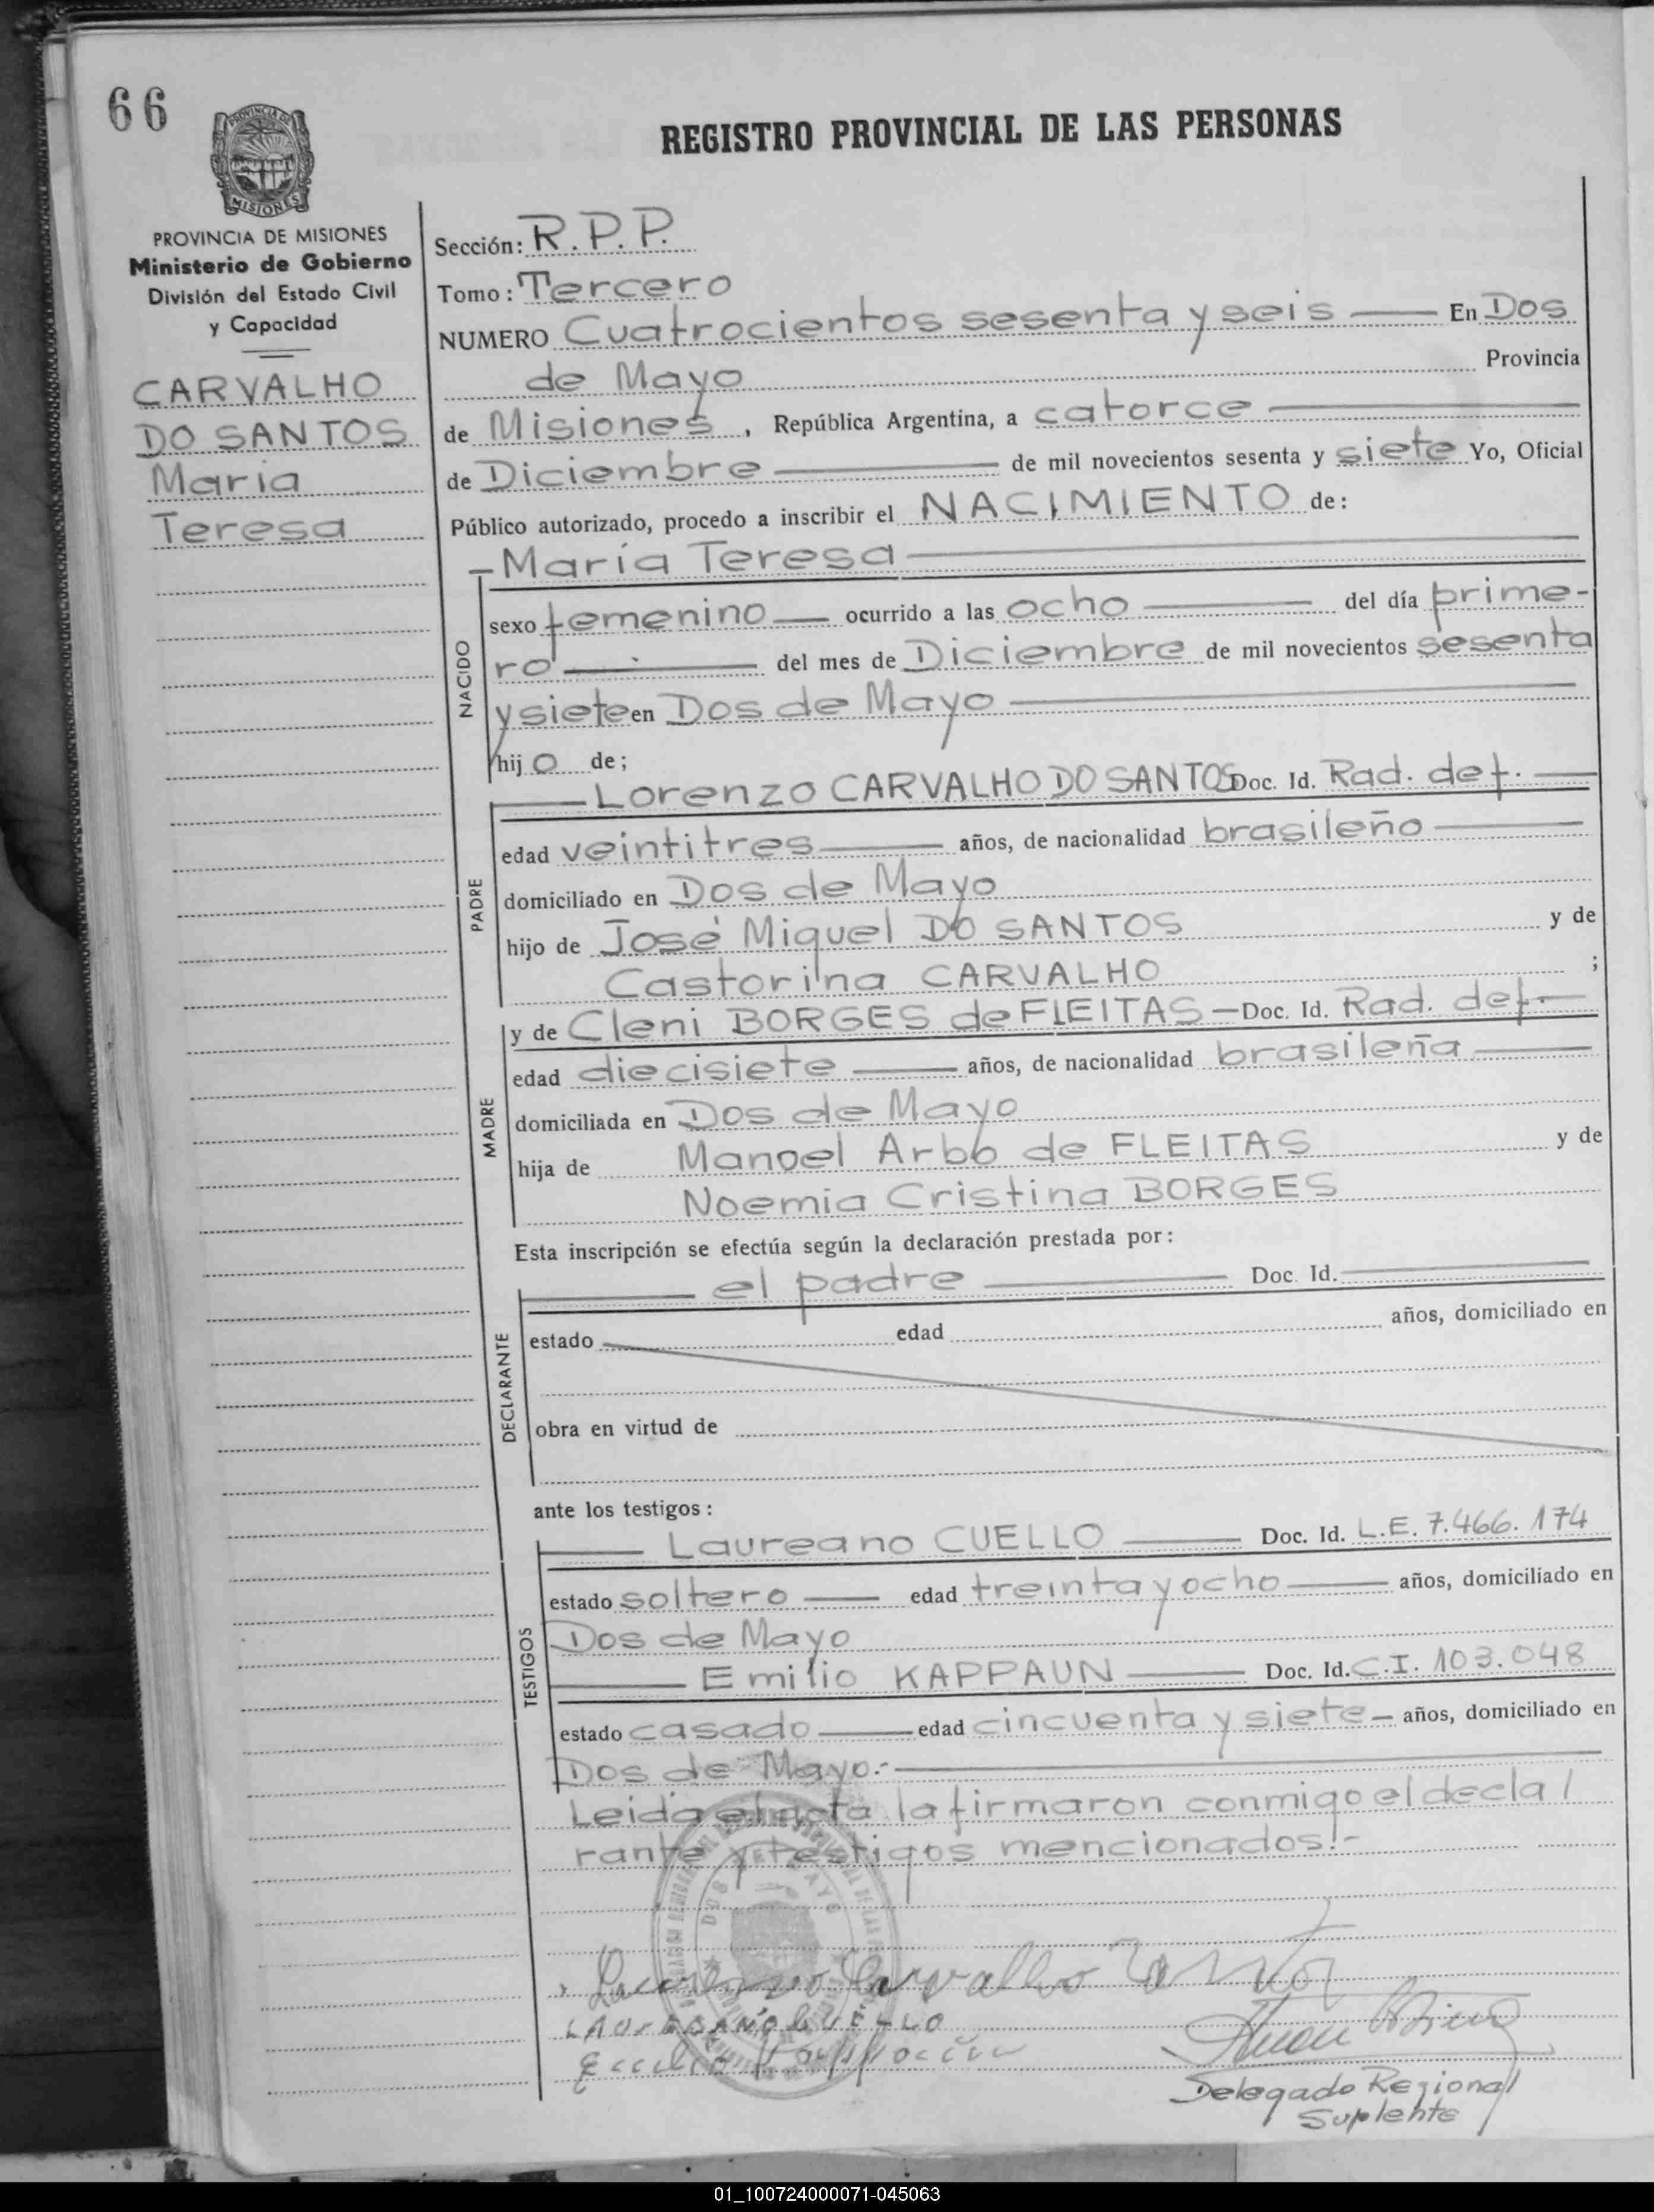 66
PROVINCIA DE
MISIONES
REGISTRO PROVINCIAL DE LAS PERSONAS
PROVINCIA DE MISIONES
Ministerio de Gobierno
División del Estado Civil
y Capacidad
CARVALHO
DO SANTOS
María
Teresa
Sección: R.P.P.
Tomo: Tercero
NUMERO Cuatrocientos sesenta y seis — En Dos
de Mayo Provincia
de Misiones, República Argentina, a catorce —
de Diciembre — de mil novecientos sesenta y siete Yo, Oficial
Público autorizado, procedo a inscribir el NACIMIENTO de:
- María Teresa —
NACIDO
sexo femenino — ocurrido a las ocho — del día prime-
ro — del mes de Diciembre de mil novecientos sesenta
y siete en Dos de Mayo —
hijo de;
PADRE
— Lorenzo CARVALHO DO SANTOS Doc. Id. Rad. def. —
edad veintitres — años, de nacionalidad brasileño —
domiciliado en Dos de Mayo
hijo de José Miguel DO SANTOS y de
Castorina CARVALHO ;
MADRE
y de Cleni BORGES de FLEITAS — Doc. Id. Rad. def. —
edad diecisiete — años, de nacionalidad brasileña —
domiciliada en Dos de Mayo
hija de Manoel Arbo de FLEITAS y de
Noemia Cristina BORGES
Esta inscripción se efectúa según la declaración prestada por:
DECLARANTE
— el padre — Doc. Id. —
estado edad años, domiciliado en
obra en virtud de
ante los testigos:
TESTIGOS
— Laureano CUELLO — Doc. Id. L.E. 7.466.174
estado soltero — edad treinta y ocho — años, domiciliado en
Dos de Mayo
— Emilio KAPPAUN — Doc. Id. C.I. 103.048
estado casado — edad cincuenta y siete — años, domiciliado en
Dos de Mayo.- —
Leida el acta la firmaron conmigo el decla/
rante y testigos mencionados.-
DOS DE MAYO
Carvalho
LAUREANO CUELLO
Delegado Regional
Suplente
01_100724000071-045063